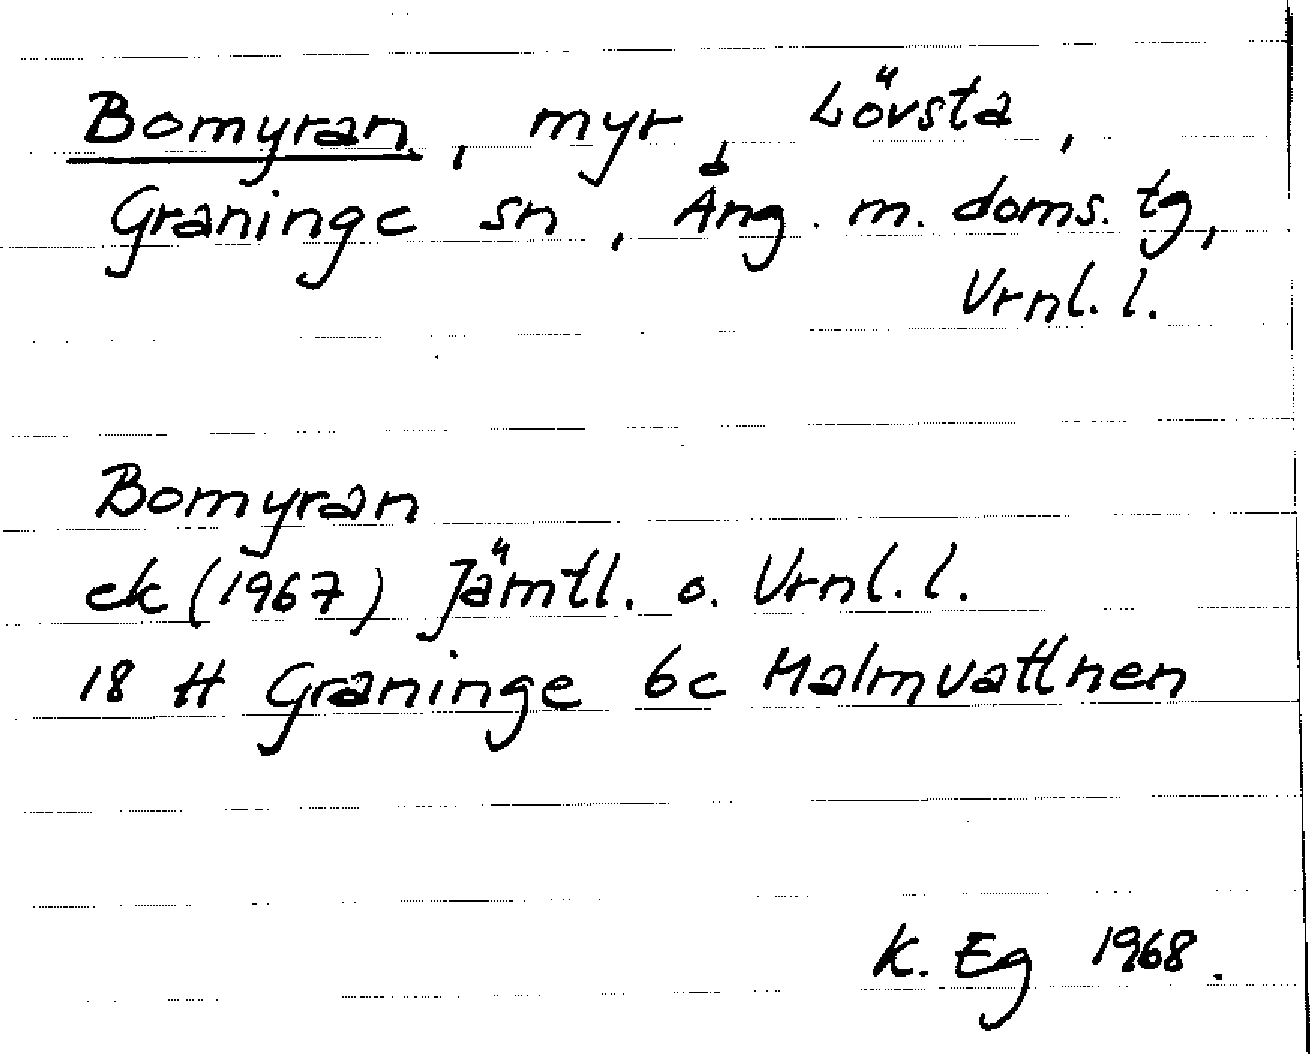 Bomyran, myr, Lövsta,
Graninge sn, Ång. m. doms. tg,
Vrnl. l.
Bomyran
ek (1967) Jämtl. o. Vrnl. l.
18 H Graninge 6c Malmvattnen
K. Eg 1968.